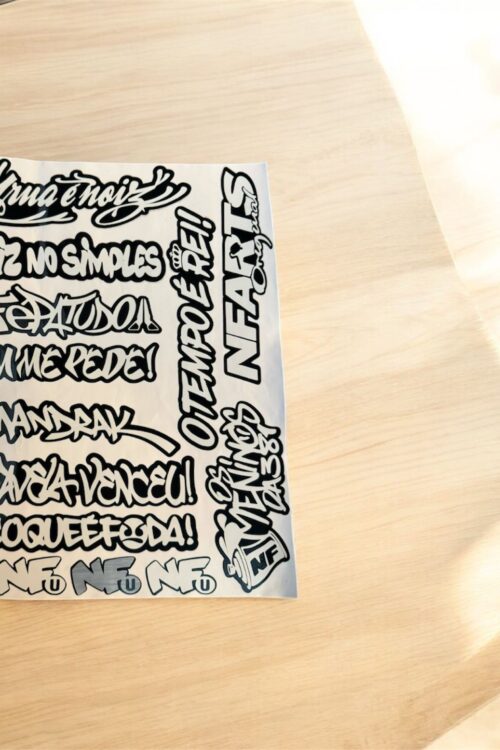 rua é noiz
NO SIMPLES
FéPATUDO
ME PEDE!
MANDRAK
VENCEU!
OQUEÉFODA!
NFU NFU NFU
O TEMPO É REI!
NFARTS
Original
OS
MENINOS
DA 381
NF